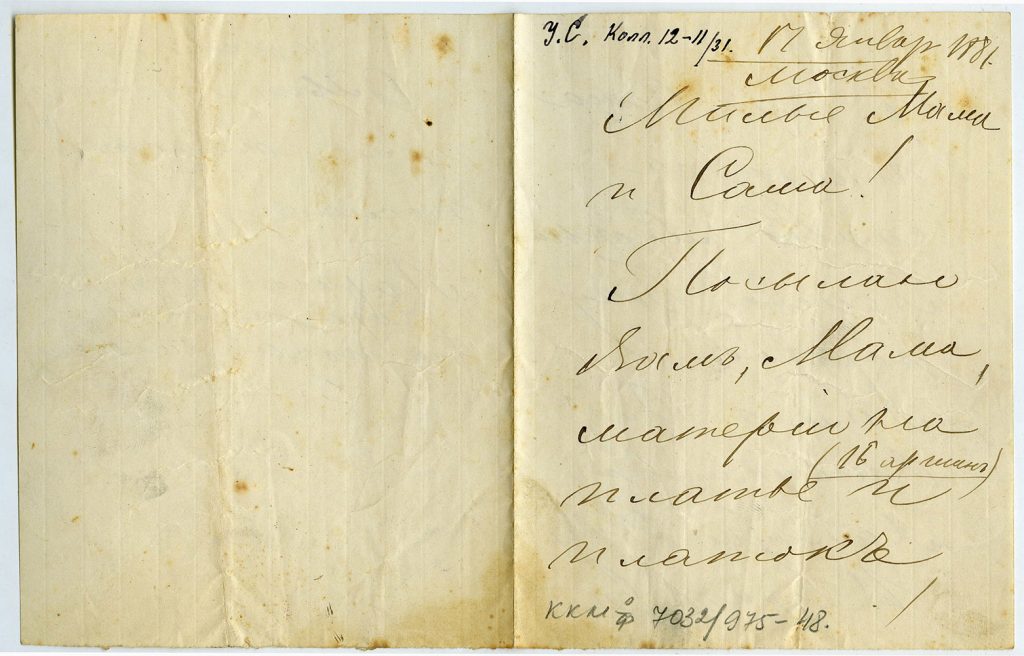 У.С. Колл. 12-11/31.
17 Январ 1881.
Москва
Милые Мама
и Саша!
Посылаю
Вамъ, Мама,
матеріи на
(16 аршинъ)
платье и
платокъ
ККМ оф 7032/975-48.